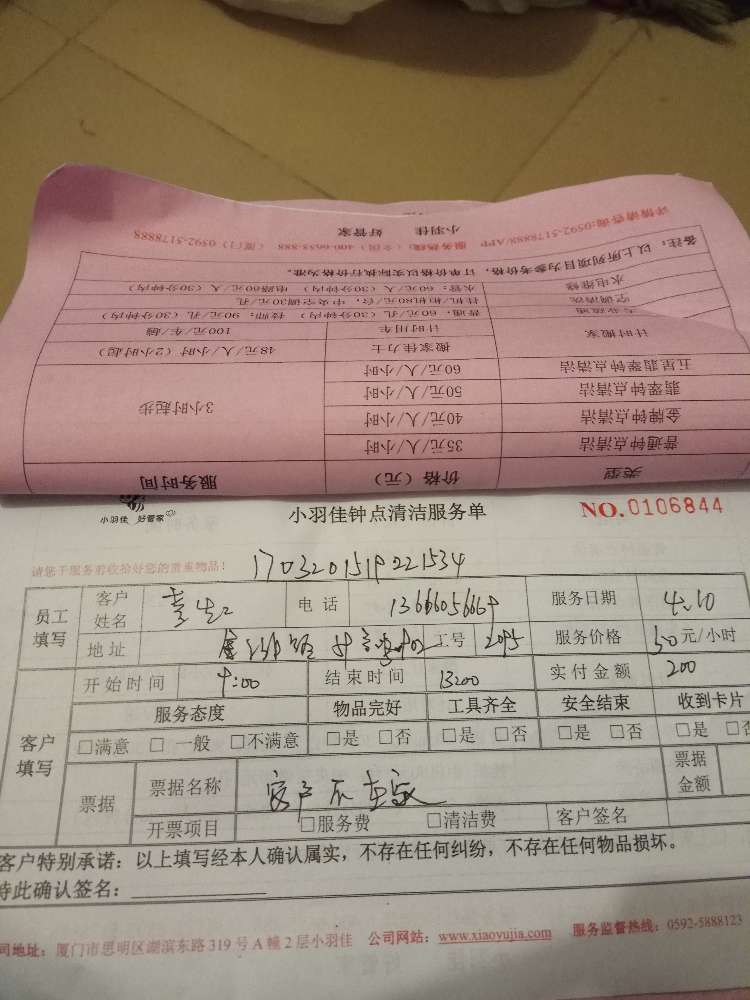 详情请咨询:0592-5178888/APP 服务热线:(全国)400-6633-888 (厦门)0592-5178888
小羽佳 好管家
备注:以上所列项目为参考价格,订单价格以实际执行价格为准。
水电维修 水管:60元/人(30分钟内) 电路60元/人(30分钟内)
空调清洗 挂机/柜机80元/台,中央空调30元/孔
普通:60元/孔(30分钟) 技师:90元/孔(30分钟)
计时搬家 计时用车 100元/车/趟
搬家佳力士 48元/人/小时(2小时起)
五星翡翠钟点清洁 60元/人/小时 3小时起步
翡翠钟点清洁 50元/人/小时
金牌钟点清洁 40元/人/小时
普通钟点清洁 35元/人/小时
类型 价格(元) 服务时间
小羽佳 好管家
小羽佳钟点清洁服务单
NO.0106844
请您于服务前收拾好您的贵重物品!
员工填写 客户姓名 电话 服务日期 4.10
地址 工号 2095 服务价格 50元/小时
客户填写 开始时间 9:00 结束时间 13:00 实付金额 200
服务态度 物品完好 工具齐全 安全结束 收到卡片
□满意 □一般 □不满意 □是 □否 □是 □否 □是 □否 □是 □否
票据 票据名称 客户不在家 票据金额
开票项目 □服务费 □清洁费 客户签名
客户特别承诺:以上填写经本人确认属实,不存在任何纠纷,不存在任何物品损坏。
特此确认签名:
司地址:厦门市思明区湖滨东路319号A幢2层小羽佳 公司网站:www.xiaoyujia.com 服务监督热线:0592-5888123